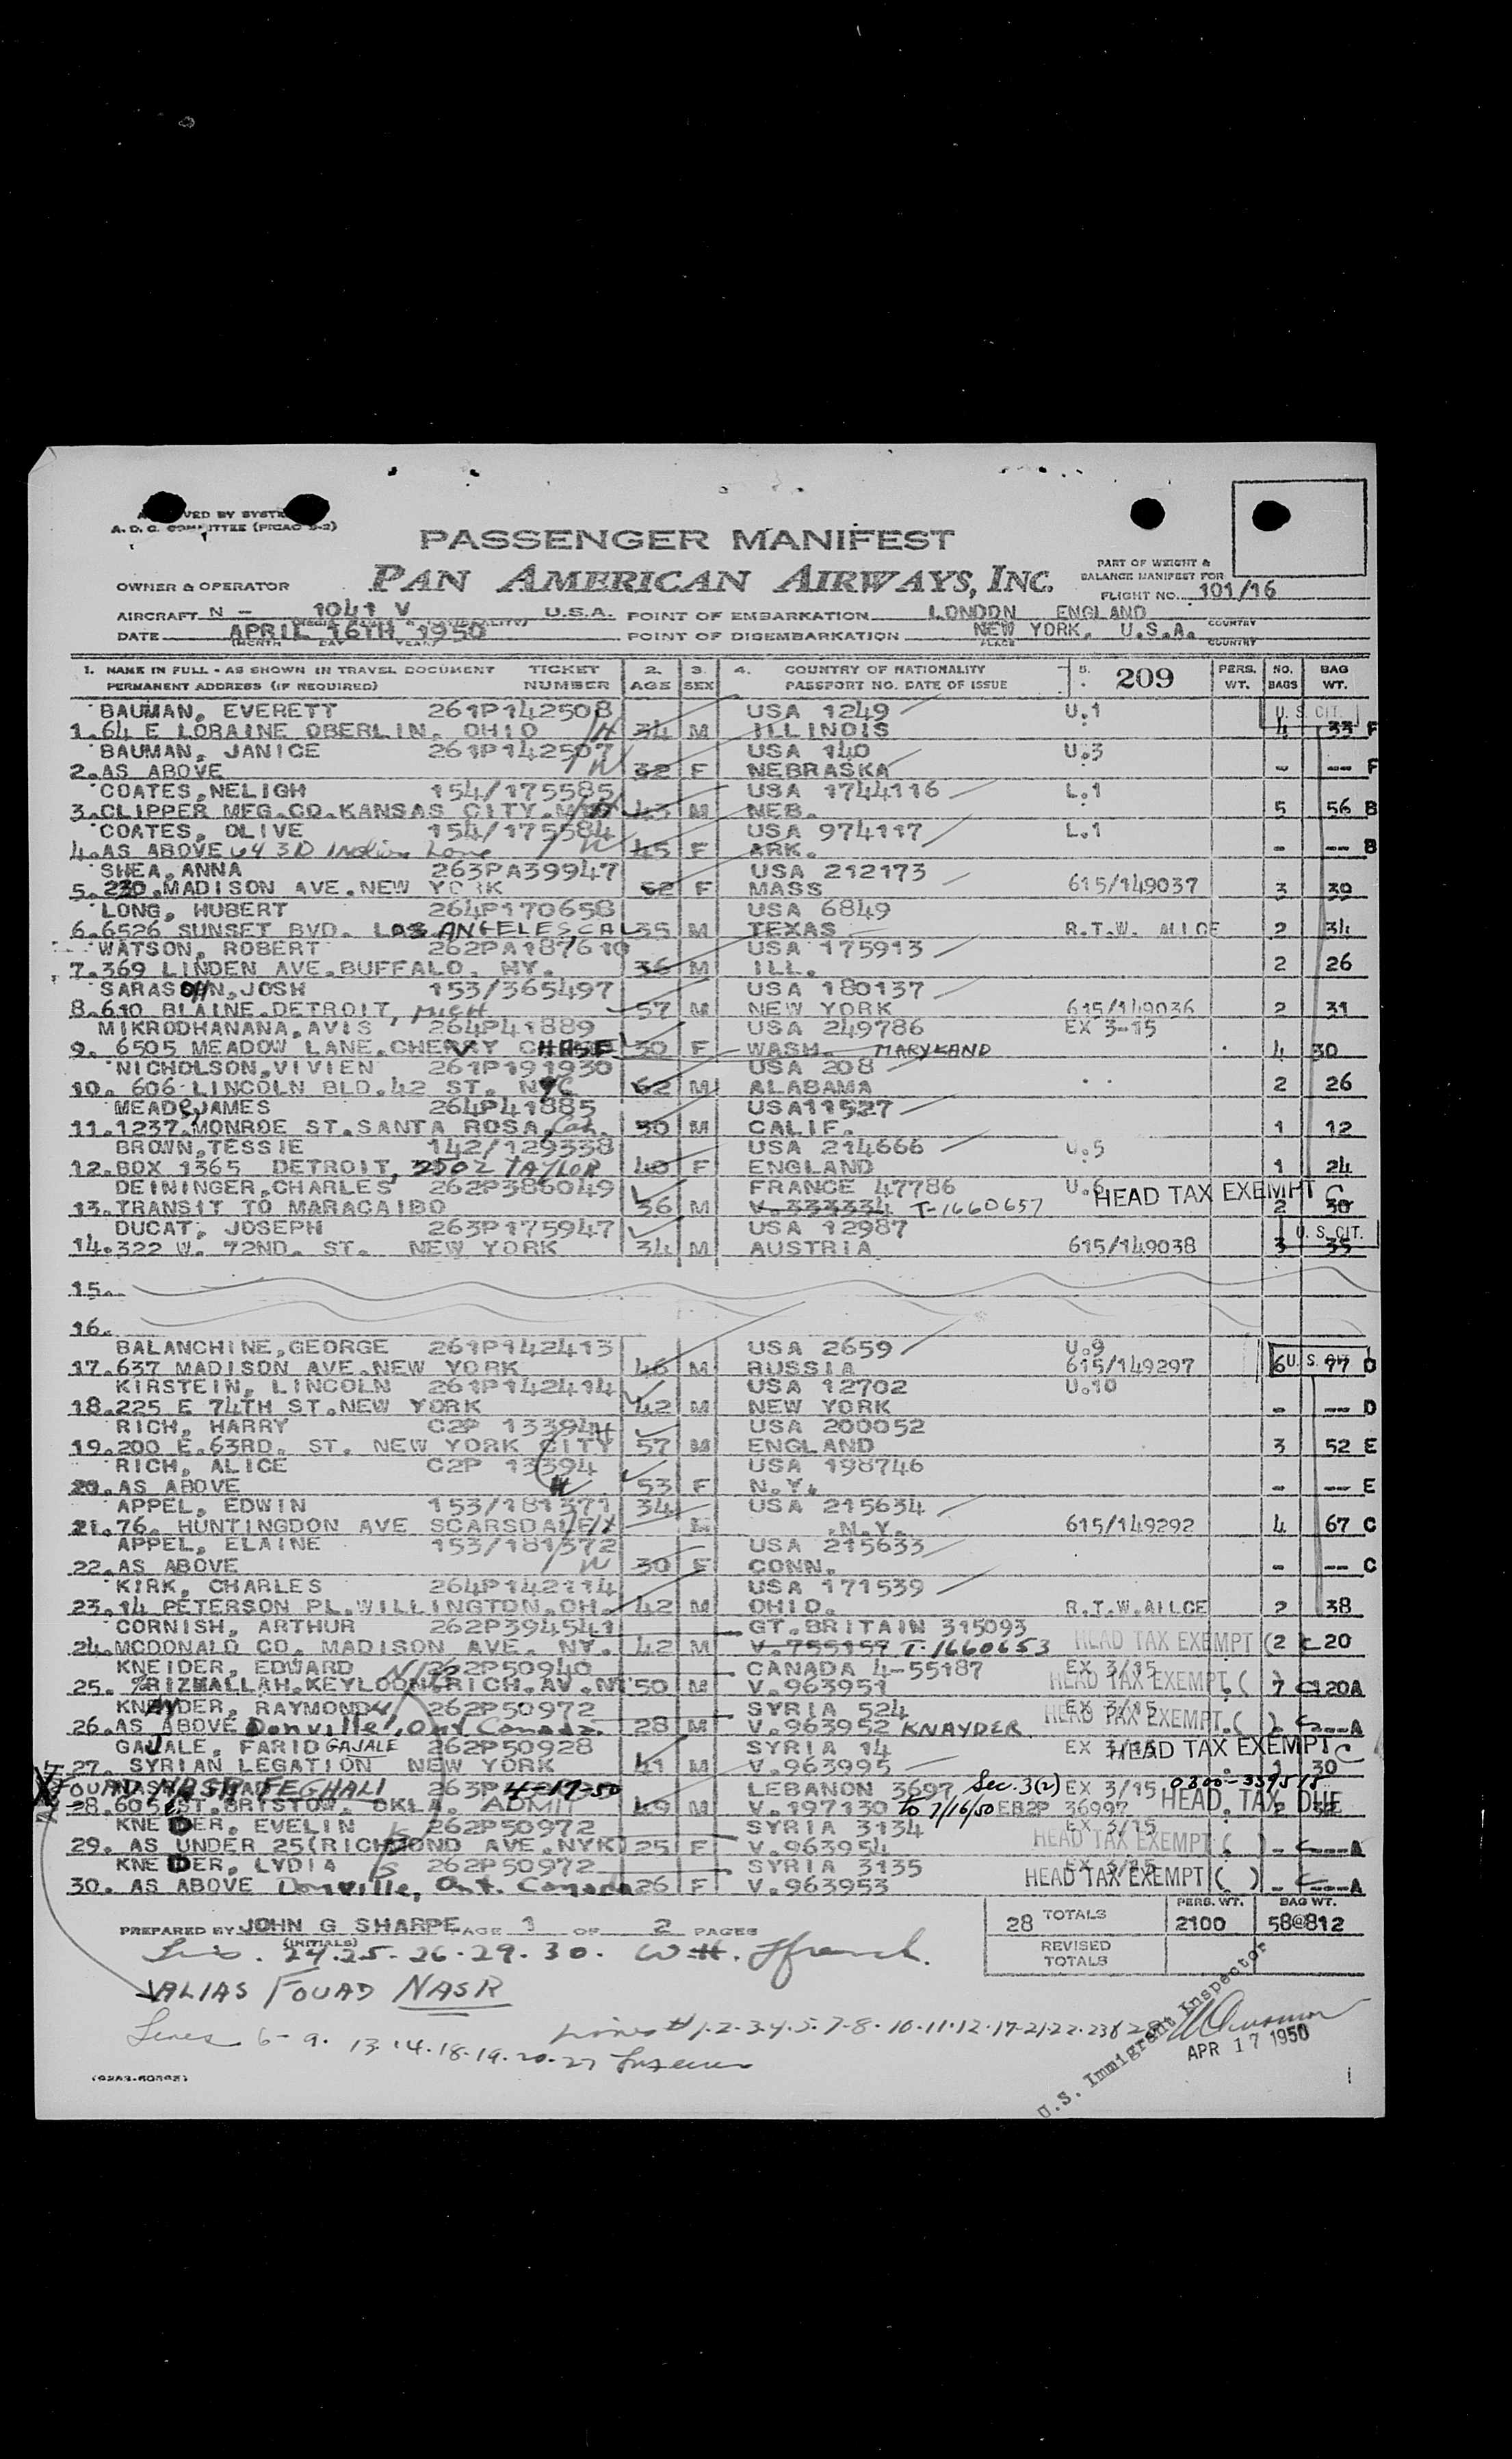 A. D. C. COMMITTEE (PICAO 9-2)
PASSENGER MANIFEST
PAN AMERICAN AIRWAYS, INC.
PART OF WEIGHT &
BALANCE MANIFEST FOR
FLIGHT NO. 101/16
OWNER & OPERATOR
AIRCRAFT N - 1041 V U.S.A. POINT OF EMBARKATION LONDON ENGLAND
COUNTRY
DATE APRIL 16TH 1950 POINT OF DISEMBARKATION NEW YORK. U.S.A.
(MONTH DAY YEAR) PLACE COUNTRY
1. NAME IN FULL - AS SHOWN IN TRAVEL DOCUMENT TICKET 2. 3. 4. COUNTRY OF NATIONALITY 5. 209 PERS. NO. BAG
PERMANENT ADDRESS (IF REQUIRED) NUMBER AGE SEX PASSPORT NO. DATE OF ISSUE WT. BAGS WT.
BAUMAN, EVERETT 261P142508 USA 1249 U.1 U.S. CIT.
1.64 E LORAINE OBERLIN, OHIO 34 M ILLINOIS 4 33 F
BAUMAN, JANICE 261P142507 USA 140 U.3
2.AS ABOVE W 32 F NEBRASKA - --- F
COATES,NELIGH 154/175585 USA 1744116 L.1
3.CLIPPER MFG.CO.KANSAS CITY. 43 M NEB. 5 56 B
COATES, OLIVE 154/175584 USA 974117 L.1
4.AS ABOVE 6430 Indian Lane W 45 F ARK. - --- B
SHEA,ANNA 263PA39947 USA 212173
5.230.MADISON AVE.NEW YORK 62 F MASS 615/149037 3 39
LONG, HUBERT 264P170658 USA 6849
6.6526 SUNSET BVD. LOS ANGELES CAL 35 M TEXAS R.T.W. ALLCE 2 34
WATSON, ROBERT 262PA187610 USA 175913
7.369 LINDEN AVE.BUFFALO, NY. 36 M ILL. 2 26
SARASOHN,JOSH 153/365497 USA 180137
8.610 BLAINE.DETROIT, MICH 57 M NEW YORK 615/149036 2 31
MIKRODHANANA,AVIS 264P41889 USA 249786 EX 3-15
9. 6505 MEADOW LANE.CHEVY CHASE 30 F WASH. MARYLAND 4 30
NICHOLSON,VIVIEN 261P191930 USA 208
10. 606 LINCOLN BLD.42 ST. NYC 62 M ALABAMA 2 26
MEADE,JAMES 264P41885 USA11527
11.1237.MONROE ST.SANTA ROSA, Cal. 30 M CALIF. 1 12
BROWN,TESSIE 142/129338 USA 214666 U.5
12.BOX 1365 DETROIT, 2502 TAYLOR 40 F ENGLAND 1 24
DEININGER,CHARLES 262P386049 FRANCE 47786 U.6 HEAD TAX EXEMPT C
13.TRANSIT TO MARACAIBO 36 M V.333334 T-1660657 2 30
DUCAT, JOSEPH 263P175947 USA 12987 U. S. CIT.
14.322 W. 72ND. ST. NEW YORK 34 M AUSTRIA 615/149038 3 35
15.
16.
BALANCHINE,GEORGE 261P142413 USA 2659 U.9
17.637 MADISON AVE.NEW YORK 46 M RUSSIA 615/149297 6 U. S. CIT. 77 D
KIRSTEIN, LINCOLN 261P142414 USA 12702 U.10
18.225 E 74TH ST.NEW YORK 42 M NEW YORK - --- D
RICH, HARRY C2P 13394 H USA 200052
19.200 E.63RD. ST. NEW YORK CITY 57 M ENGLAND 3 52 E
RICH, ALICE C2P 13394 USA 198746
20.AS ABOVE W 53 F N.Y. - --- E
APPEL, EDWIN 153/181371 34 USA 215634
21.76. HUNTINGDON AVE SCARSDALE M .N.Y. 615/149292 4 67 C
APPEL, ELAINE 153/181372 USA 215633
22.AS ABOVE W 30 F CONN. - --- C
KIRK, CHARLES 264P142114 USA 171539
23.14 PETERSON PL.WILLINGTON.OH. 42 M OHIO. R.T.W.ALLCE 2 38
CORNISH, ARTHUR 262P394541 GT.BRITAIN 315093
24.MCDONALD CO. MADISON AVE. NY. 42 M V.755157 T-1660653 HEAD TAX EXEMPT ( 2 C 20
KNEIDER, EDWARD 262P50940 CANADA 4-55187 EX 3/15
25. %RIZMALLAH.KEYLOON RICH.AV.NY 50 M V.963951 HEAD TAX EXEMPT ( ) 7 120A
KNAYDER, RAYMOND 262P50972 SYRIA 524 EX 3/15
26.AS ABOVE Donville, Ont Canada. 28 M V.963952 KNAYDER HEAD TAX EXEMPT ( ) C ---A
GAJALE, FARID GAJALE 262P50928 SYRIA 14 EX 3/15 HEAD TAX EXEMPT C
27. SYRIAN LEGATION NEW YORK 41 M V.963995 1 30
NASR FEGHALI 263P 4-17-50 LEBANON 3697 Sec. 3(2) EX 3/15 0300-339515
28.605 E ST.BRISTOW. OKLA. ADMIT 49 M V.197130 To 7/16/50 EB2P 36997 HEAD TAX DUE
KNEIDER, EVELIN 262P50972 SYRIA 3134 EX 3/15
29. AS UNDER 25(RICHMOND AVE.NYK) 25 F V.963954 HEAD TAX EXEMPT ( ) - ---A
KNEIDER, LYDIA 262P50972 SYRIA 3135 EX 3/15
30. AS ABOVE Donville, Ont. Canada 26 F V.963953 HEAD TAX EXEMPT ( ) - ---A
PREPARED BY JOHN G SHARPE PAGE 1 OF 2 PAGES
(INITIALS)
28 TOTALS PERS. WT. 2100 BAG WT. 58@812
REVISED TOTALS
24.25-26-29.30. W.H. Ffrench.
ALIAS FOUAD NASR
Lines # 1-2-3-4-5-7-8-10-11-12-17-21-22-23
Lines 6-9. 13.14.18.19.20.27
U.S. Immigrant Inspector
APR 17 1950